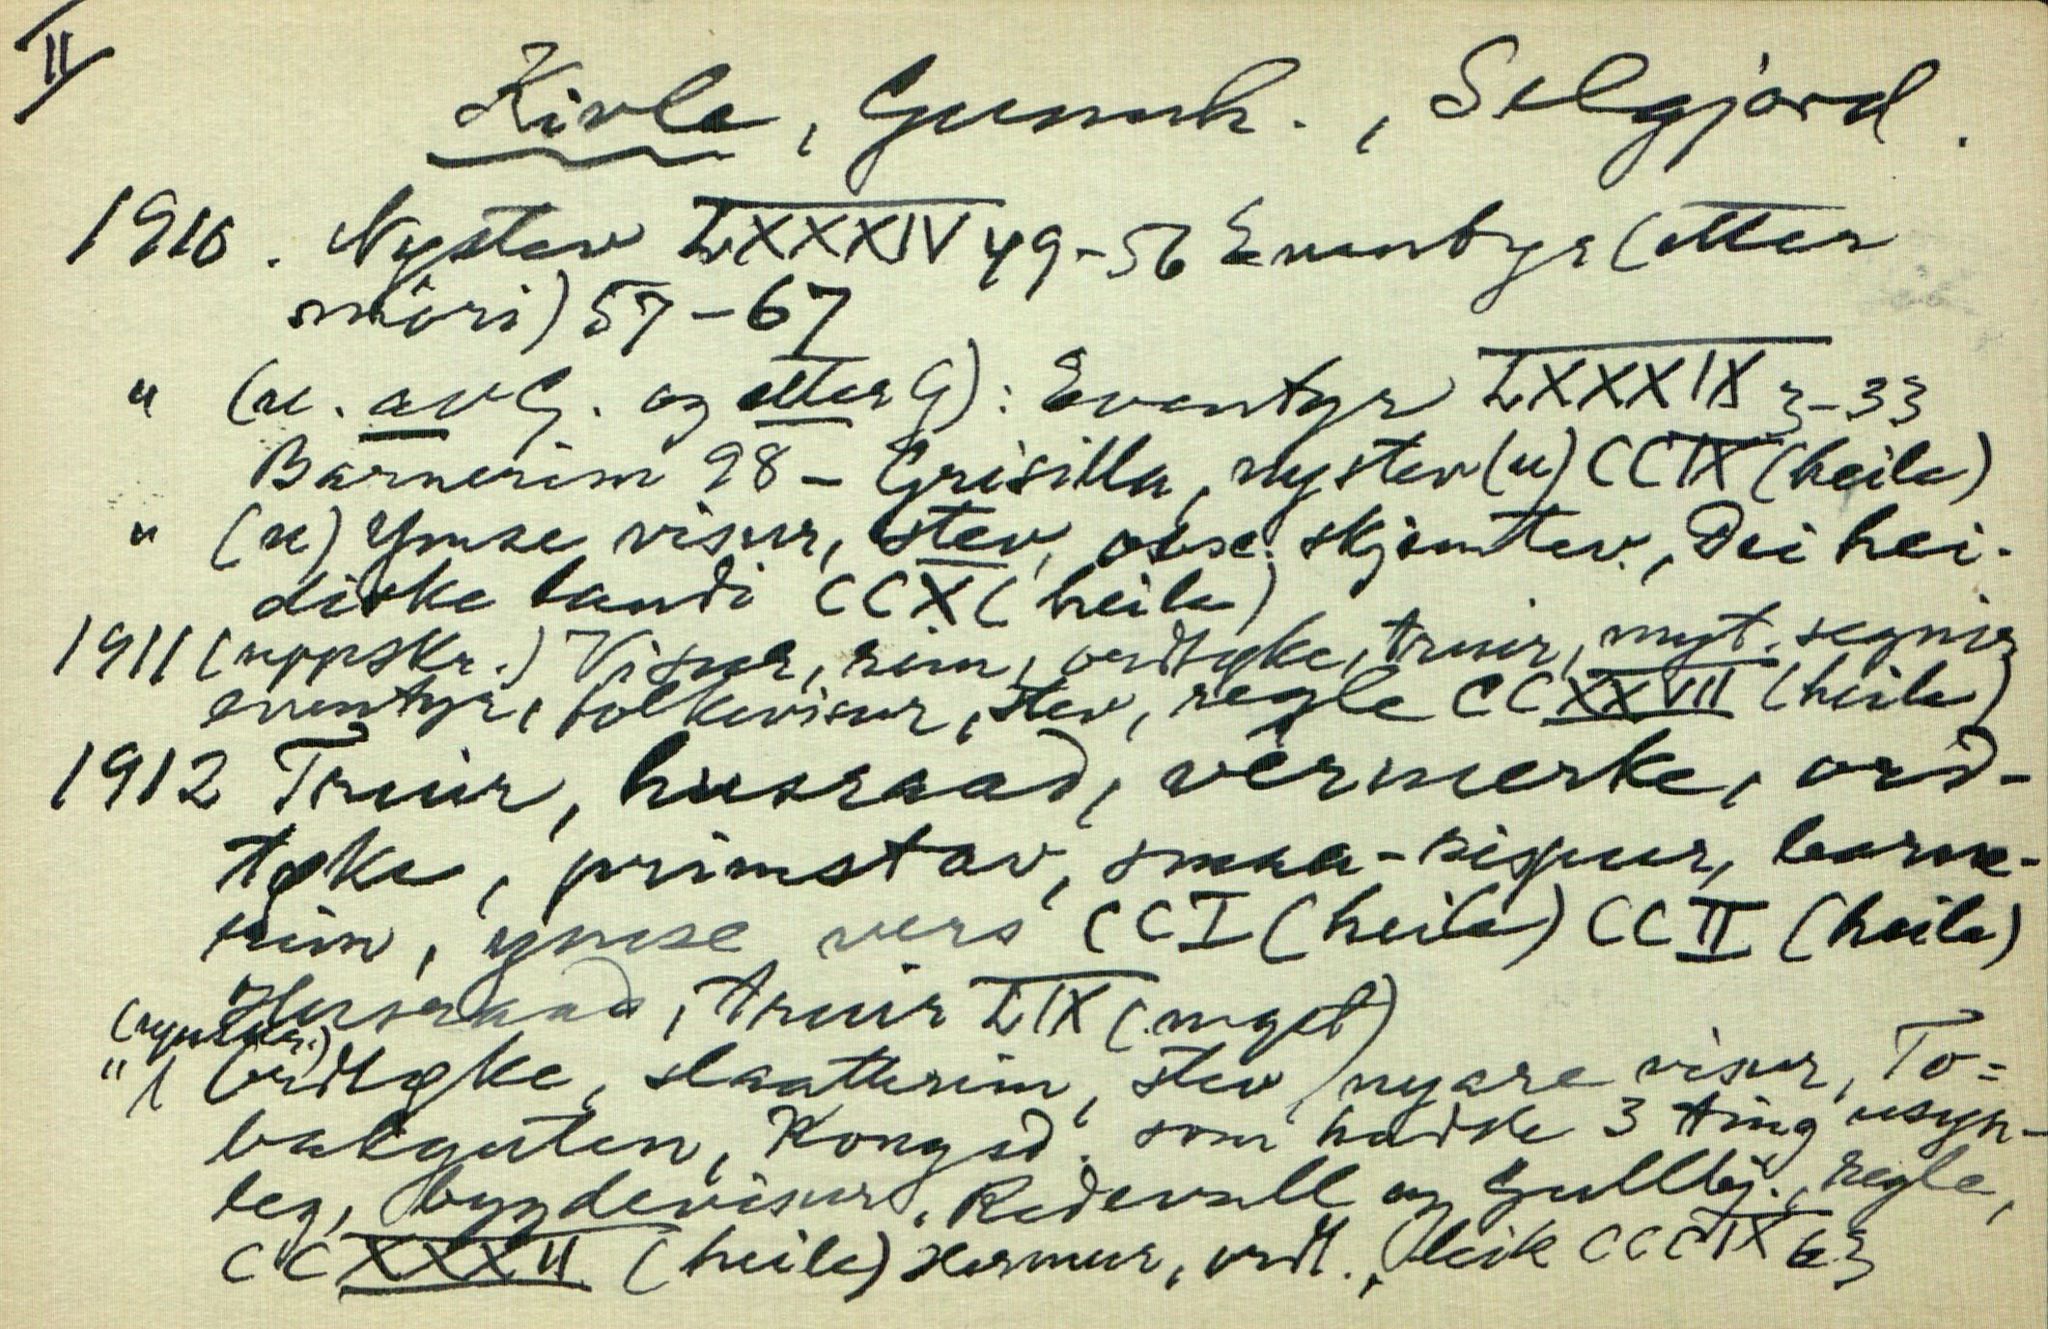 II
Kivle, Gunnh., Selgjord.
1910. Nystev LXXXIV 49-56 Eventyr (etter
mori) 57-67
" (u. av G. og etter G): Eventyr LXXXIX 3-33
Barnerim 98 - Grisilla, nystev (u) CCIX (heile)
" (u) Ymse visur, stev, skjemtev., Dei hei-
diske landi CCX (heile)
1911 (uppskr.) Visur, rim, ordtyke, truir, myt. segnir
eventyr, folkevisur, stev, regle CCXXVII (heile)
1912 Truir, husraad, vêrmerke, ord-
tyke, primstav, smaa-visur, barne-
rim, ymse vers CCI (heile) CCII (heile)
Husraad, truir LIX (mykje)
(uppskr.)
" Ordtyke, slaatterim, stev, nyare visur, To=
bakguten, Kongsd. som hadde 3 ting usyn-
leg, bygdevisur, Redevall og Gullbj., regle,
CCXXXII (heile) Hermur, ordt., leik CCCIX 63